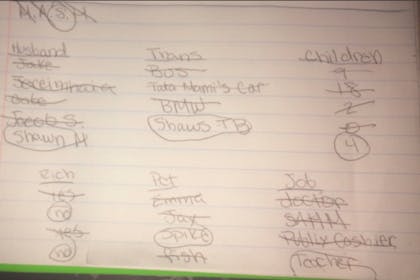 M A S H
Husband
Jake
Jacob S.
Shawn M
Trans
BUS
Tata Nami's Car
BMW
Shaws TB
Children
9
18
2
0
4
Rich
yes
no
yes
no
Pet
Emma
Jax
Spike
fish
Job
doctor
SAHM
Publix Cashier
Teacher